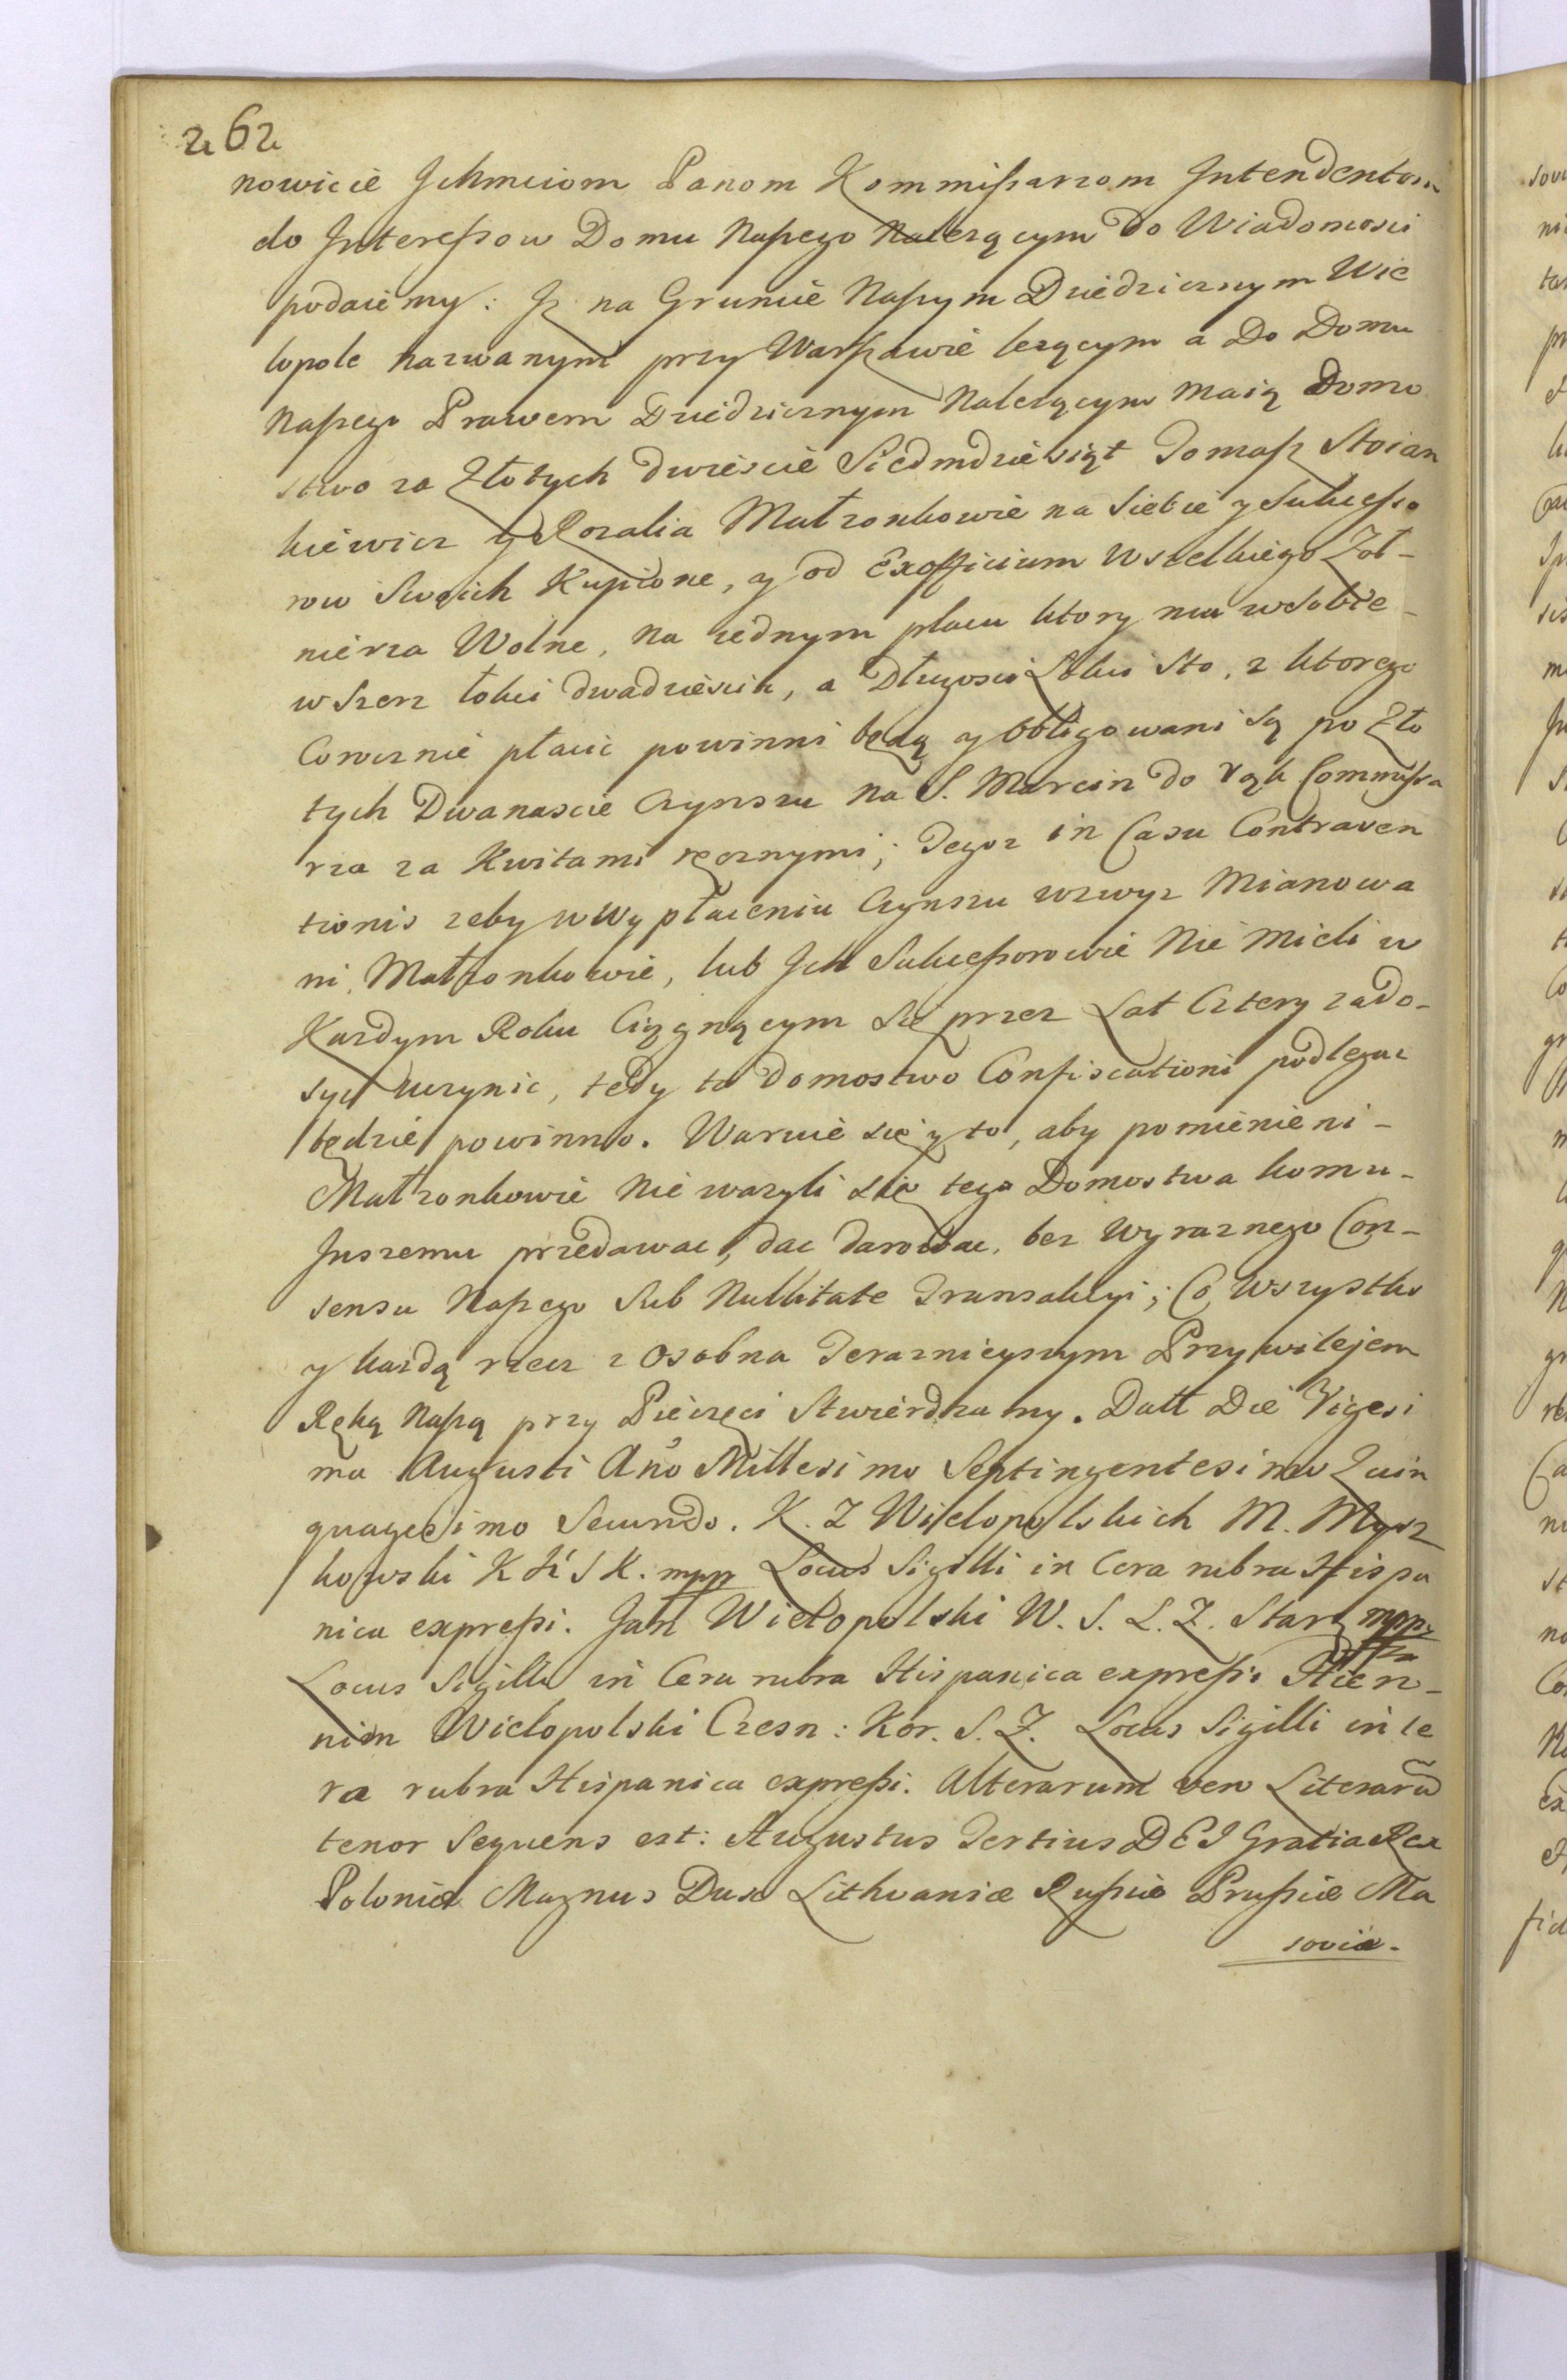 262
nowicie Jchmciom Panom Kommißarzom Jntendentom
do Jntereßow Domu Naßego Nalezącym do Wiadomosci
podaiemy: Jz na Gruncie Naßym Dziedzicznym Wie
lopole nazwanym przy Warßawie lezącym a Do Domu
Naßego Prawem Dziedzicznym Nalezącym maią Domo
stwo za Złotych dwiescie Siedmdziesiąt Tomaß Stoian
kiewicz y Rozalia Małzonkowie na siebie y Sukceßo
row Swoich Kupione, y od Exofficium wszelkiego Zoł-
nierza Wolne, na iednym placu ktory ma w sobie-
w szerz łokci dwadziescia, a Dlugosci Lokci sto, z ktorego
Corocznie płacic powinni będą y obligowani są po Zło
tych Dwanascie Czynszu na S. Marcin do rąk Commißa
rza za Kwitami ręcznymi; Tegoz in Casu Contraven
tionis zeby w wypłaceniu Czynszu wzwyz Mianowa
ni Małzonkowie, lub Jch Sukceßorowie Nie mieli w
Kazdym Roku Ciągnącym się przez Lat Cztery zado-
syc uczynic, tedy to Domostwo Confiscationi podlegac
będzie powinno. Waruie się y to, aby pomienieni-
Małzonkowie Nie wazyli się tego Domostwa komu-
Jnszemu przedawac, dac darowac, bez Wyraznego Con-
sensu Naßego Sub Nullitate Transakcyi; Co wszystko
y kazdą rzecz z Osobna Teraznieyszym Przywilejem
Ręką Naßą przy Pieczęci Stwierdzamy. Datt Die Vigesi
ma Augusti Año Millesimo Septingentesimo Quin
quagesimo Secundo. K. Z Wielopolskich M. Mysz
kowski K K S K. mpp Locus Sigilli in Cera rubra Hispa
nica expreßi. Jan Wielopolski W. S. L. Z. Star mpp
Locus Sigilli in Cera rubra Hispanica expreßi Hiero-
nim Wielopolski Czesn: Kor. S. Z. Locus Sigilli in Ce
ra rubra Hispanica expreßi. Alterarum vero Literarũ
tenor Sequens est: Augustus Tertius DEI Gratia Rex
Poloniæ Magnus Dux Lithvaniæ Rußiæ Prußiæ Ma
soviæ.